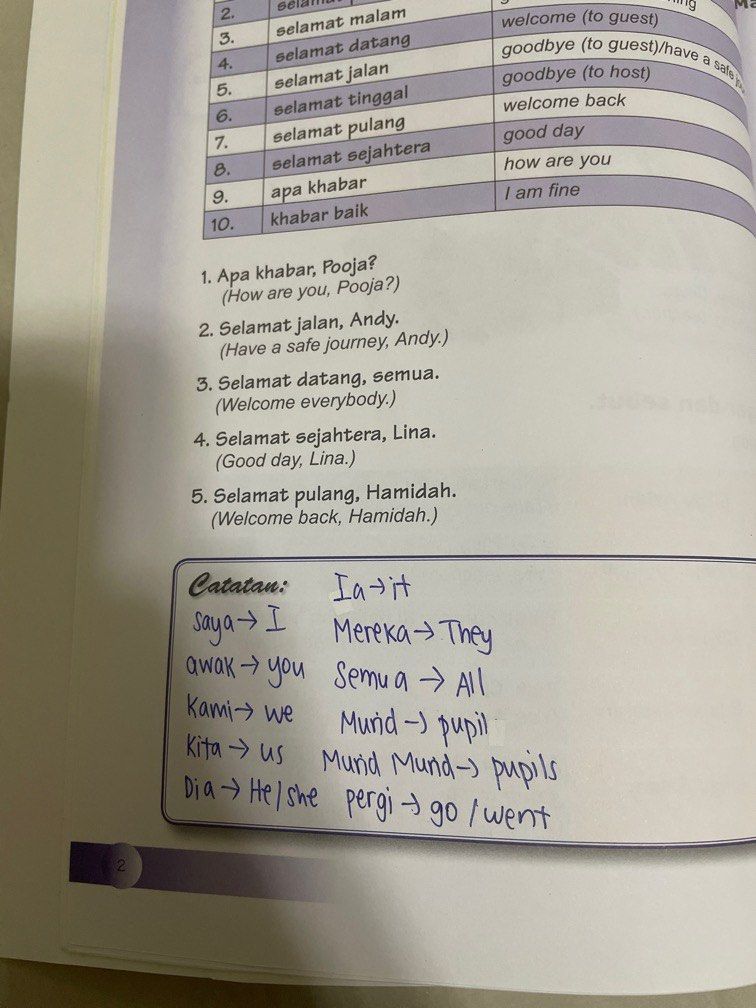 2.
3. selamat malam
4. selamat datang welcome (to guest)
5. selamat jalan goodbye (to guest)/have a safe
6. selamat tinggal goodbye (to host)
7. selamat pulang welcome back
8. selamat sejahtera good day
9. apa khabar how are you
10. khabar baik I am fine
1. Apa khabar, Pooja?
(How are you, Pooja?)
2. Selamat jalan, Andy.
(Have a safe journey, Andy.)
3. Selamat datang, semua.
(Welcome everybody.)
4. Selamat sejahtera, Lina.
(Good day, Lina.)
5. Selamat pulang, Hamidah.
(Welcome back, Hamidah.)
Catatan: Ia → it
Saya → I Mereka → They
awak → you Semua → All
Kami → we Murid → pupil
Kita → us Murid Murid → pupils
Dia → He/she pergi → go / went
2